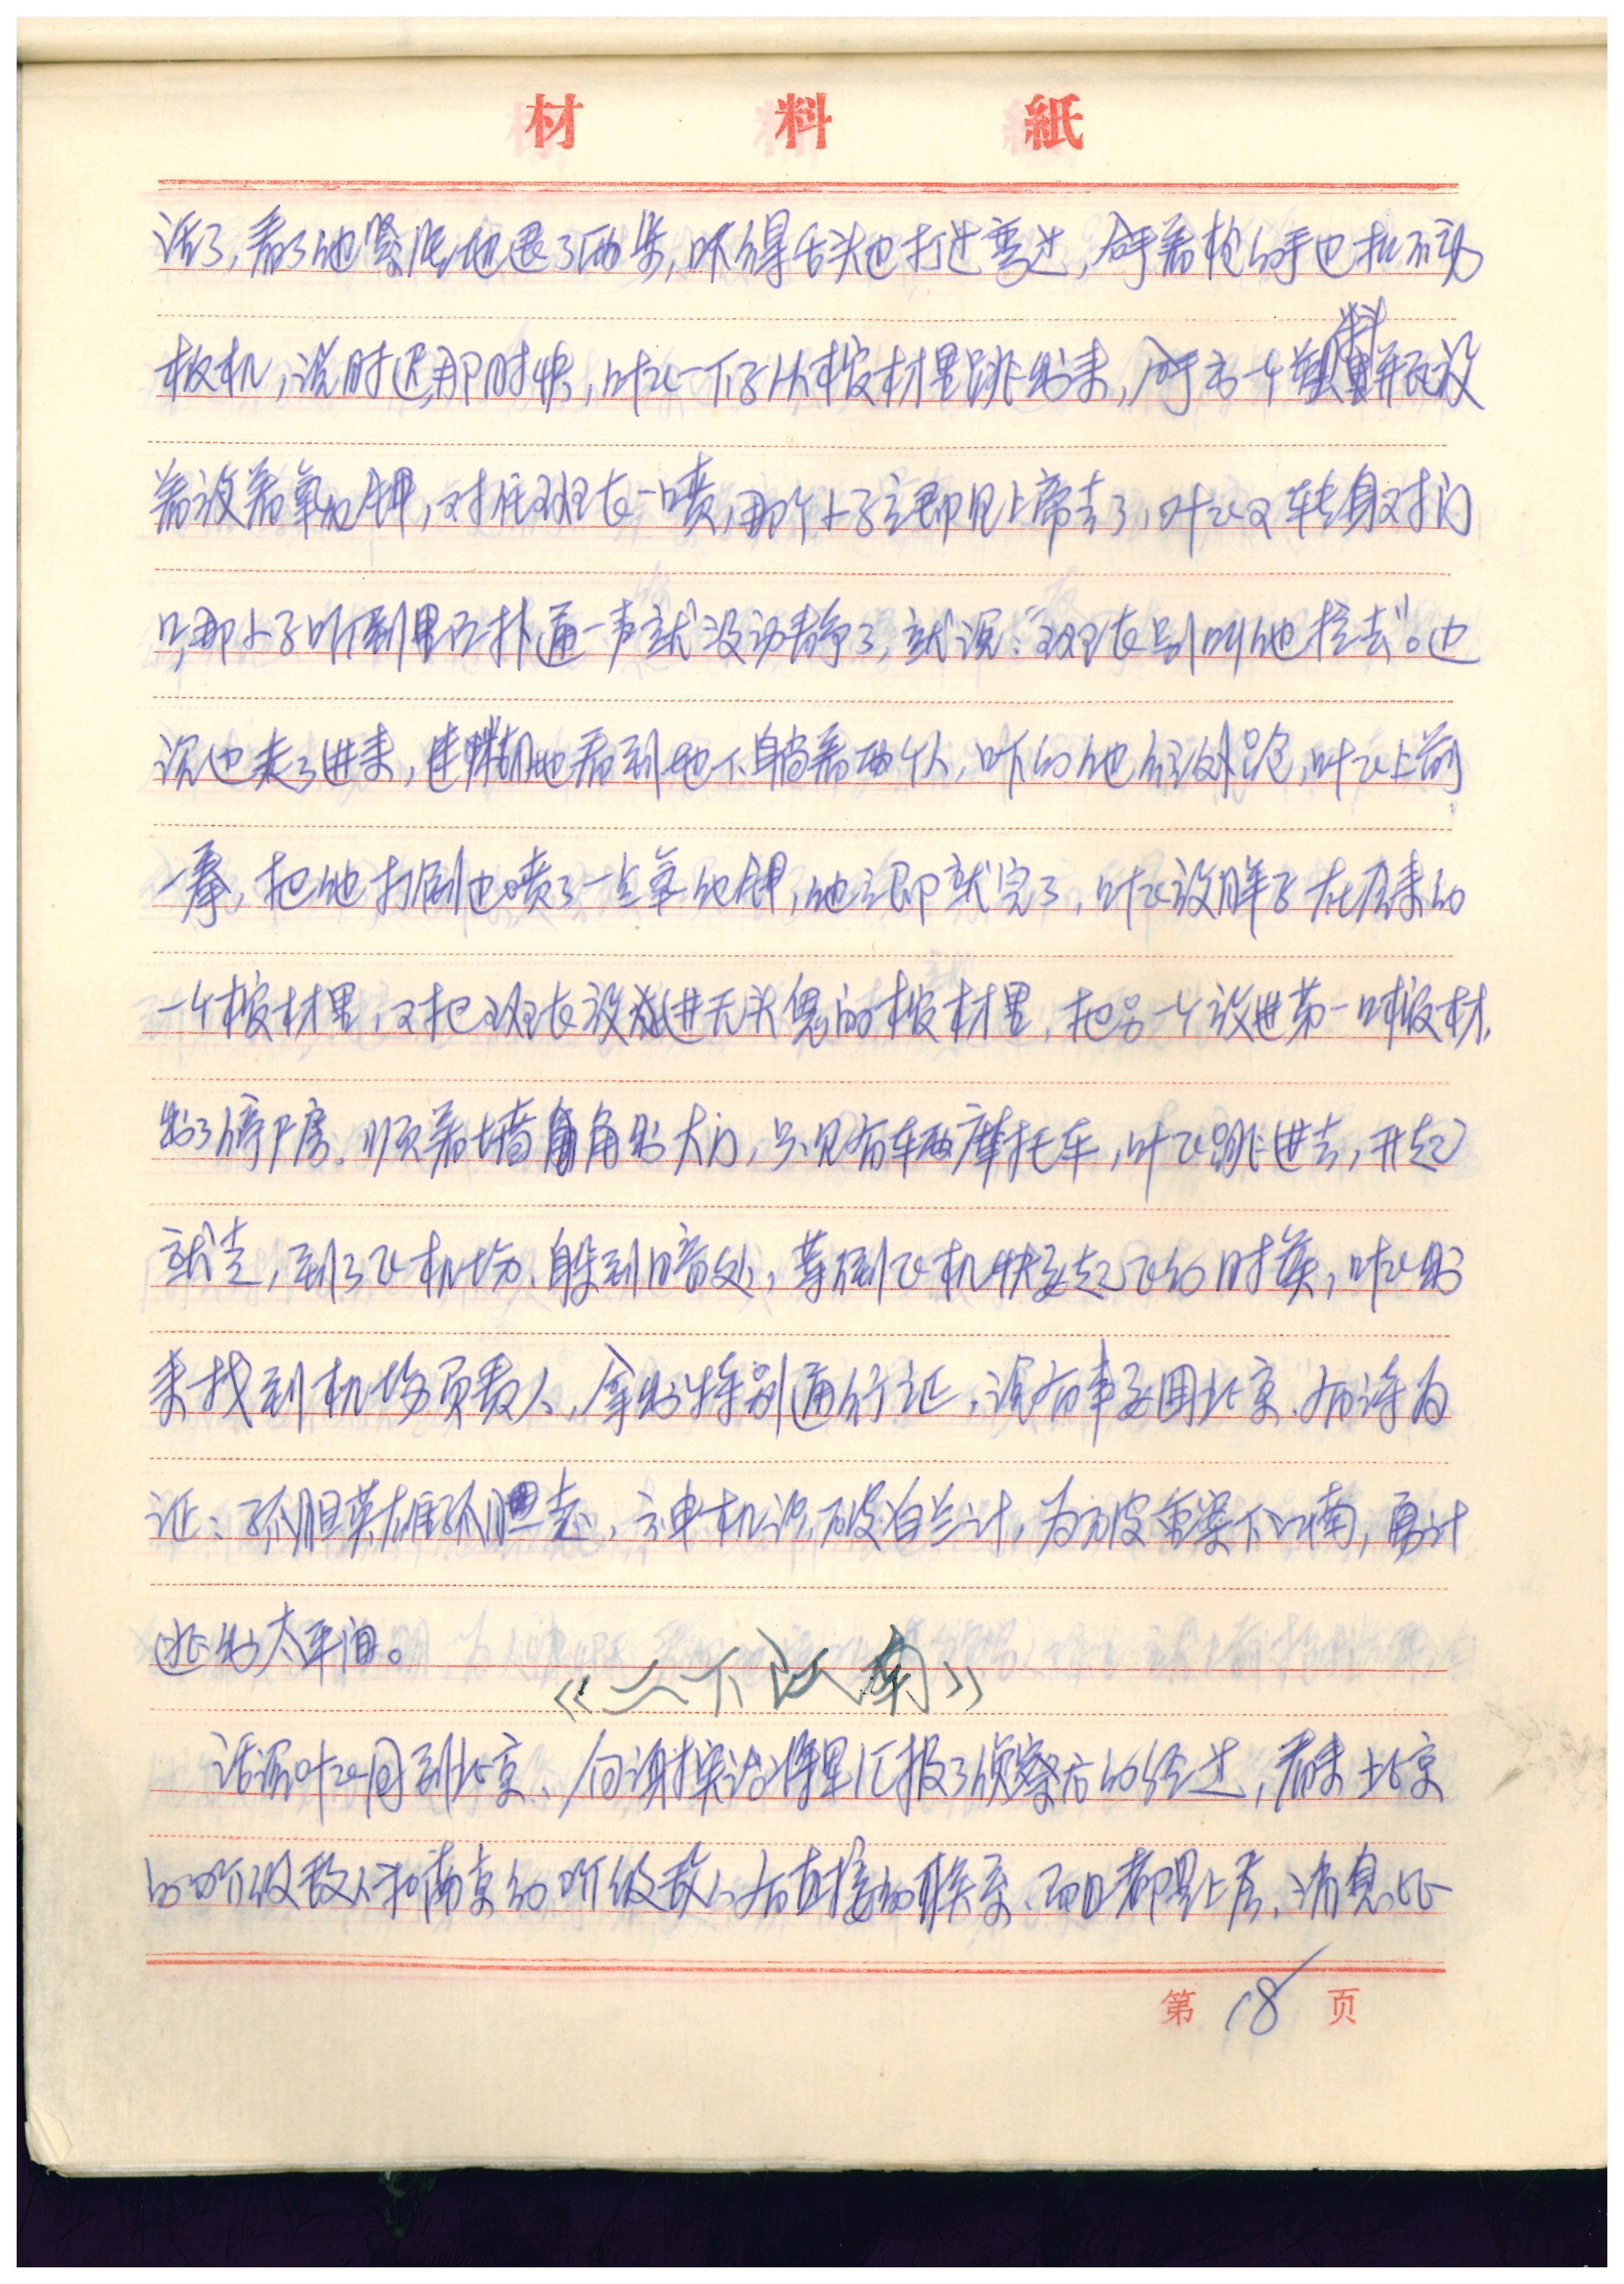 材料紙
话了，看了他紧张地退了两步，吓得舌头也打过弯过，拿着枪的手也扣不动
板机，说时迟那时快，叶飞一下子从棺材里跳出来，拿出一个塑料瓶放
着放着氰化钾，对准班长一喷，那个小子立即见上帝去了，叶飞又转身对门
口，那小子听到里面扑通一声就没动静了，就说：“班长别叫他拉去”。边
说边走了进来，连忙地看到地下躺着两个人，吓的他往外跑，叶飞上前
一拳，把他打倒也喷了一点氰化钾，他立即就完了，叶飞放胖子在原来的
一个棺材里，又把班长放进无头鬼的棺材里，把另一个放进第一口棺材，
出了停尸房。顺着墙角出大门，只见有车两摩托车，叶飞跳进去，开起
就走，到了飞机场、躲到暗处，等到飞机快要起飞的时候，叶飞出
来找到机场负责人，拿出特别通行证，说有事要回北京、有诗为
证：孤胆英雄孤胆走，神机识破白兰计，为破重案下江南，勇计
逃出太平间。
《二下江南》
话说叶飞回到北京、向谢探话将里汇报了侦察后的经过，看来北京
的阶级敌人和南京的阶级敌人有直接的联系、而且都是上层，消息比
第18页